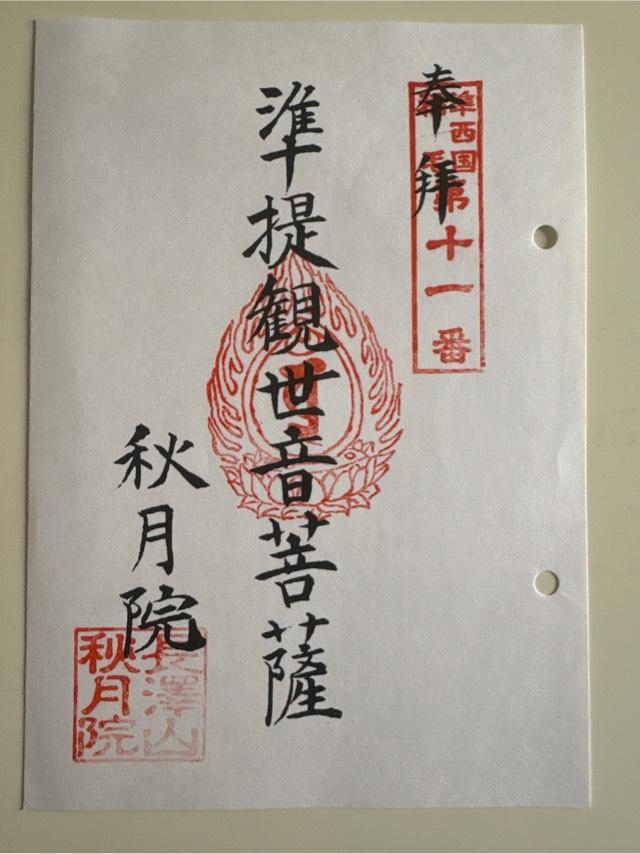 奉拝
準西国
第十一番
準提観世音菩薩
秋月院
長澤山
秋月院